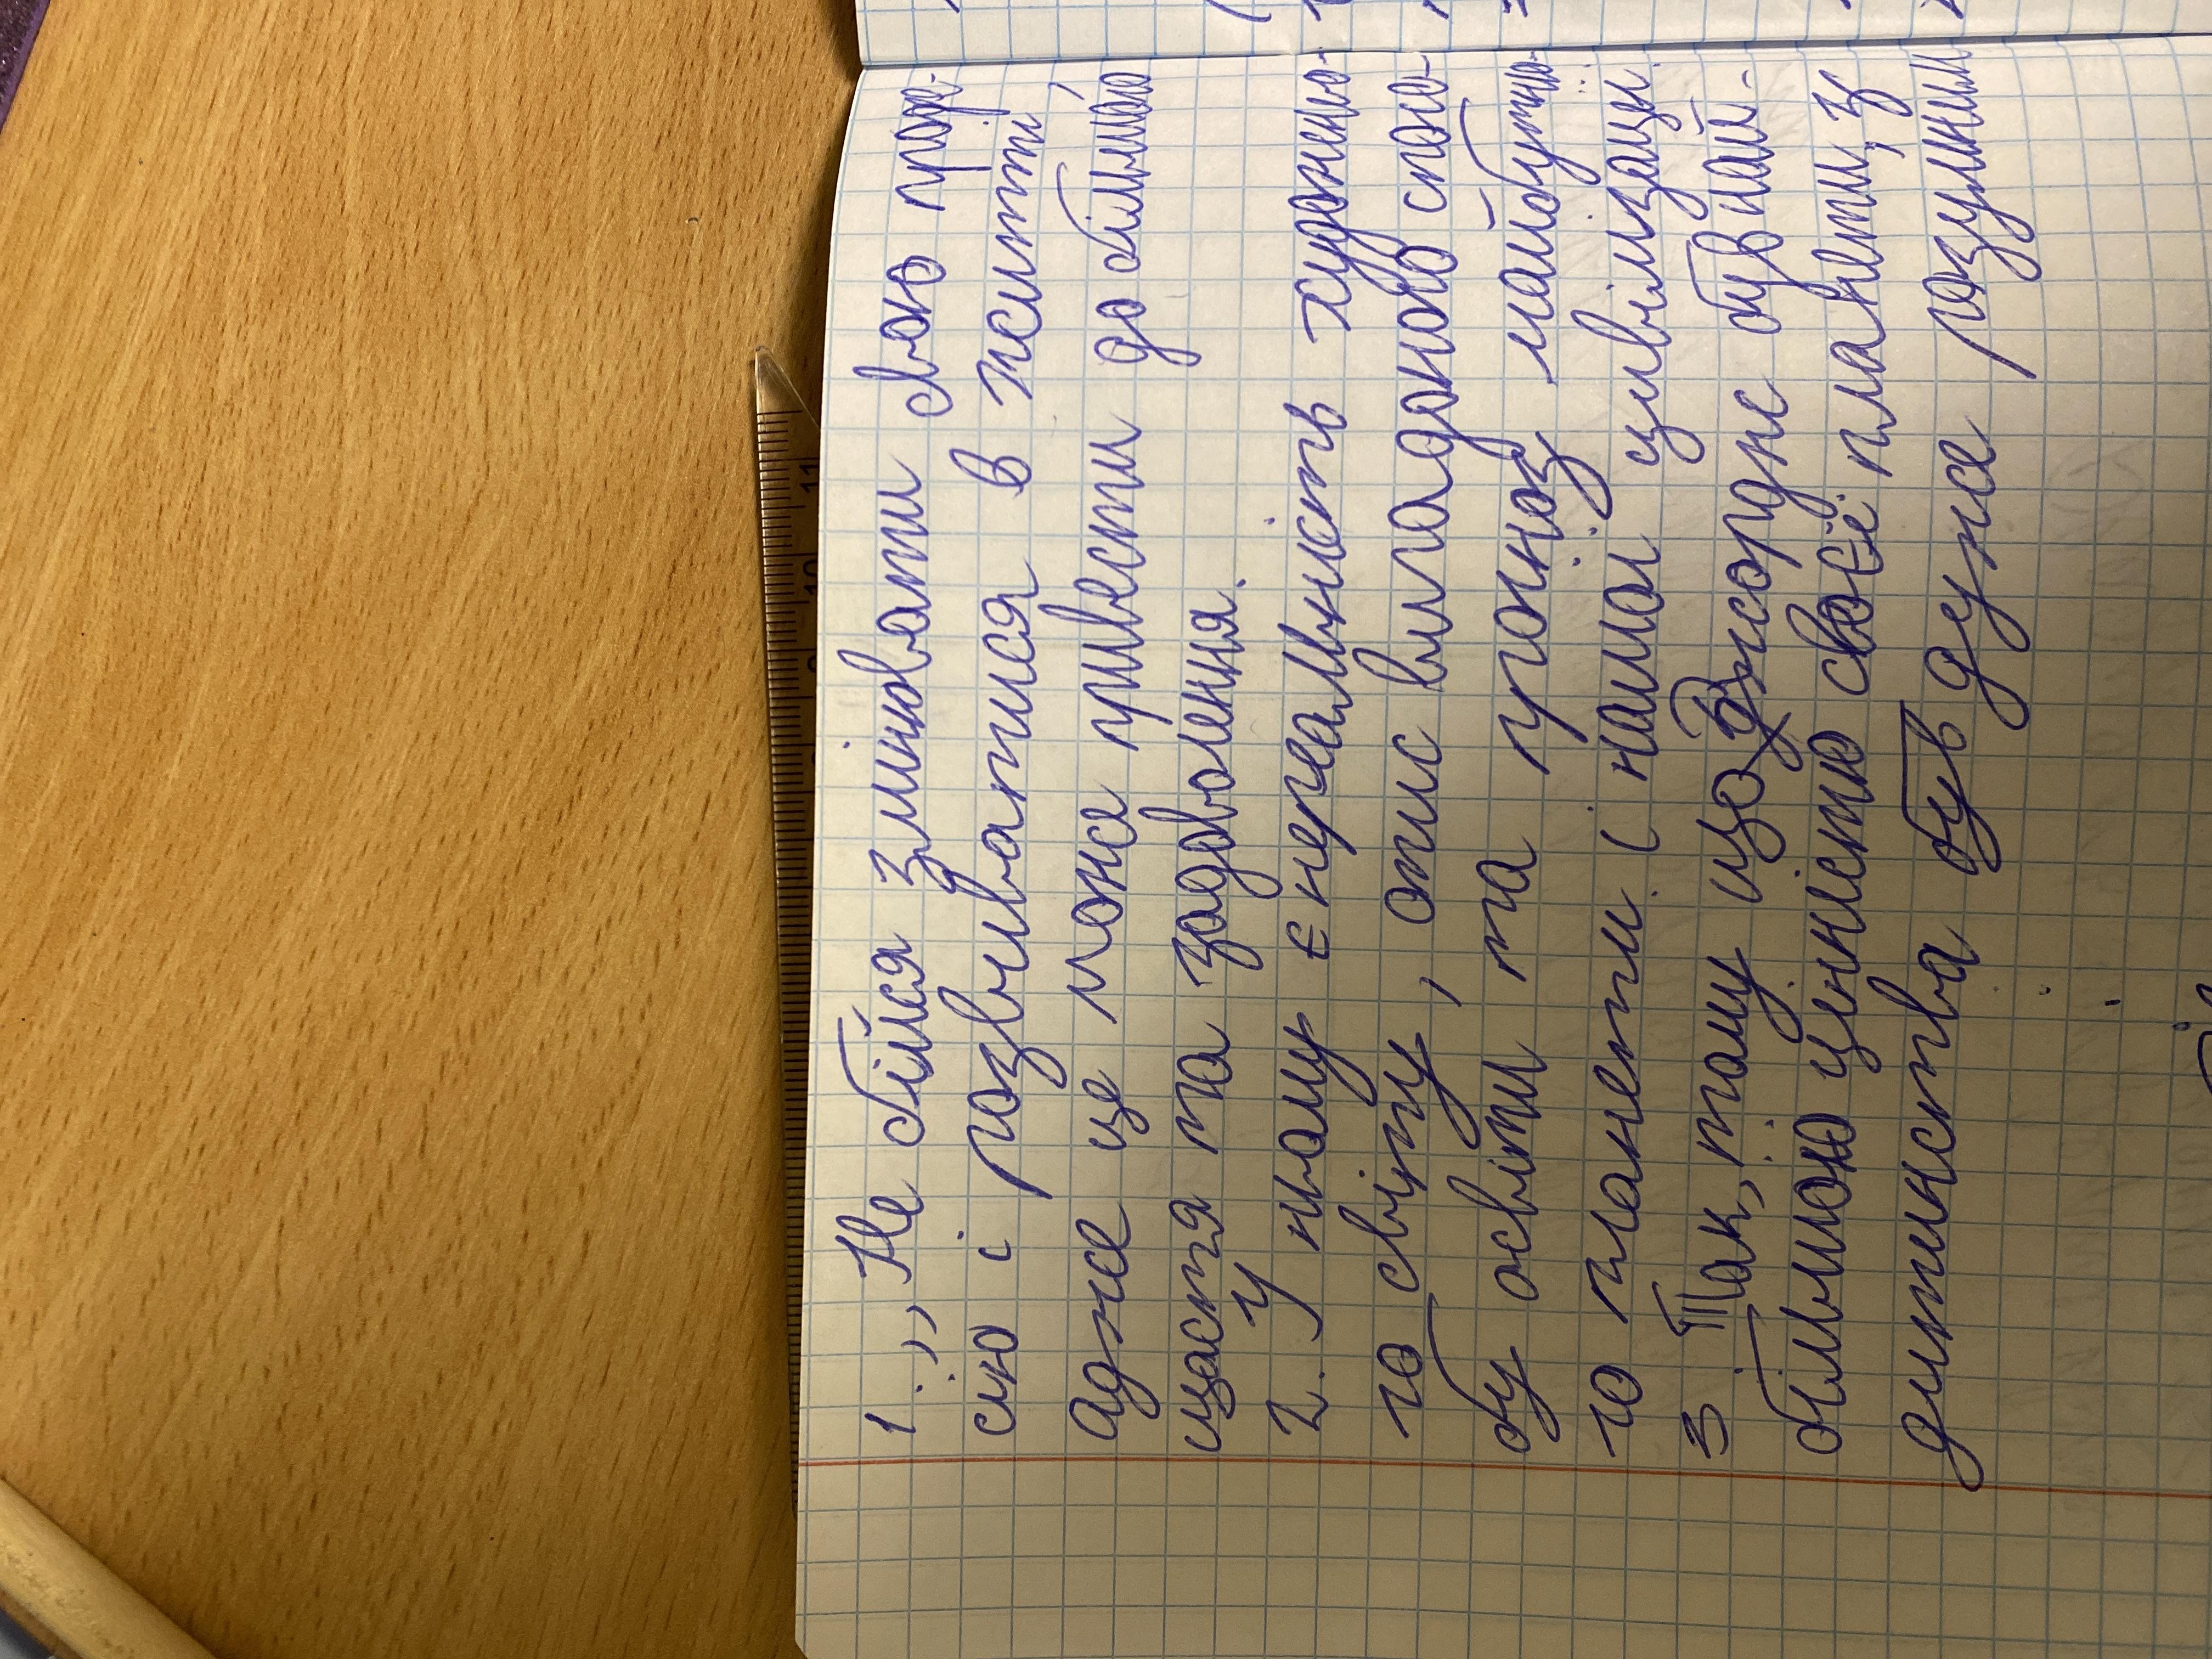 1. ,, Не бійся змінювати свою профе-
сію і розвиватися в житті,
адже це може привести до більшого
щастя та задоволення.
2. У ньому є нереальність художньо-
го світу, опис випадкового спосо-
бу освіти та прогноз майбутньо-
го планети і нашої цивілізації.
3 Так, тому що Джордже був най-
більшою цінністю своєї планети, з
дитинства був дуже розумним